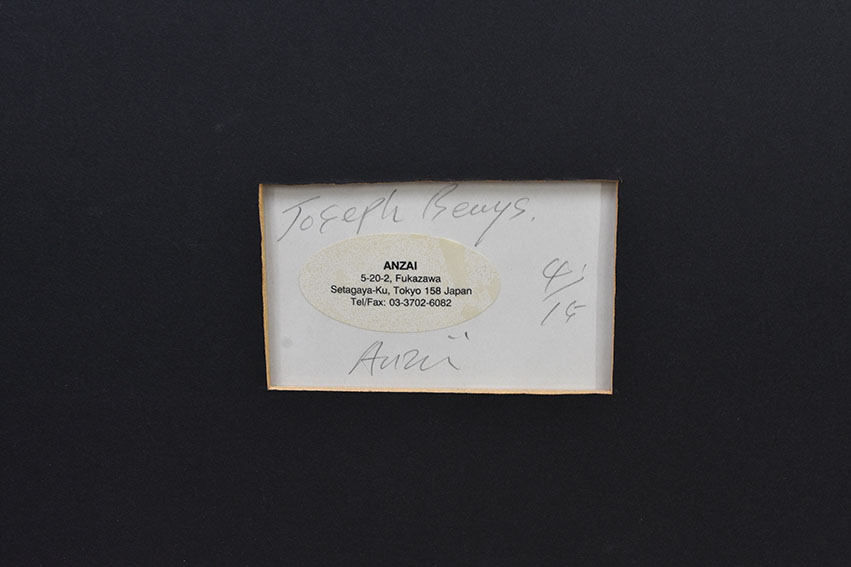 Joseph Beuys.
ANZAI
5-20-2, Fukazawa
Setagaya-Ku, Tokyo 158 Japan
Tel/Fax: 03-3702-6082
4/15
Anzaï